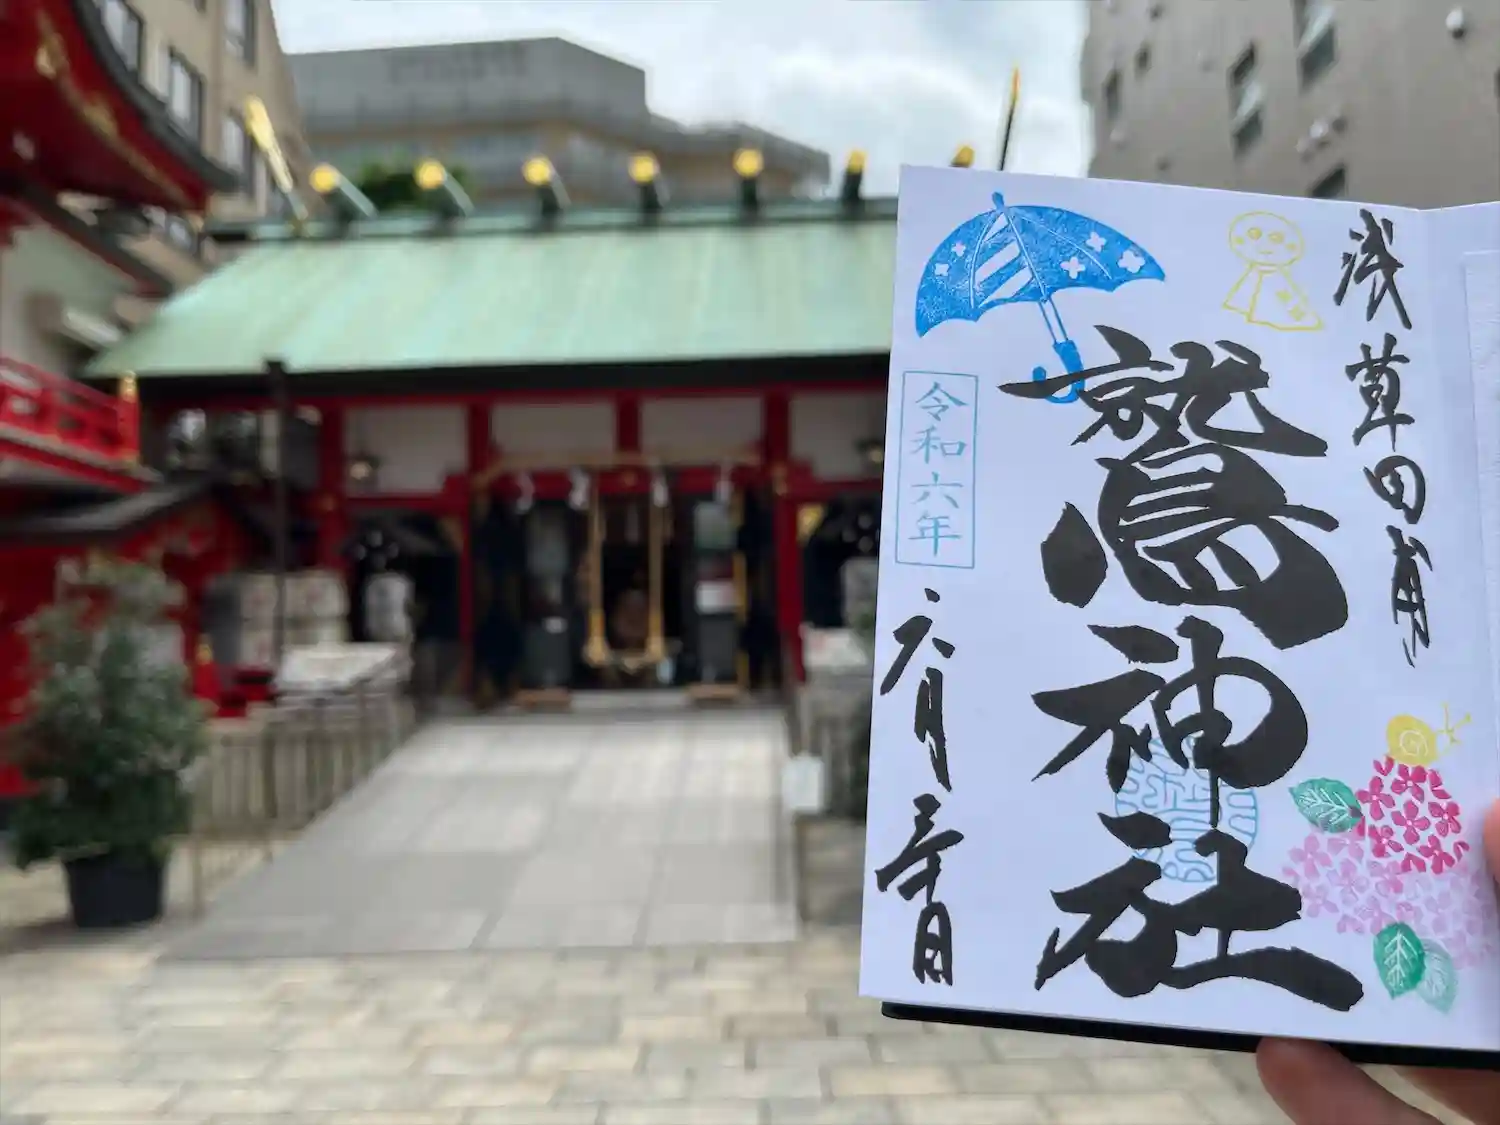 浅草田甫
鷲神社
令和六年
六月三十日